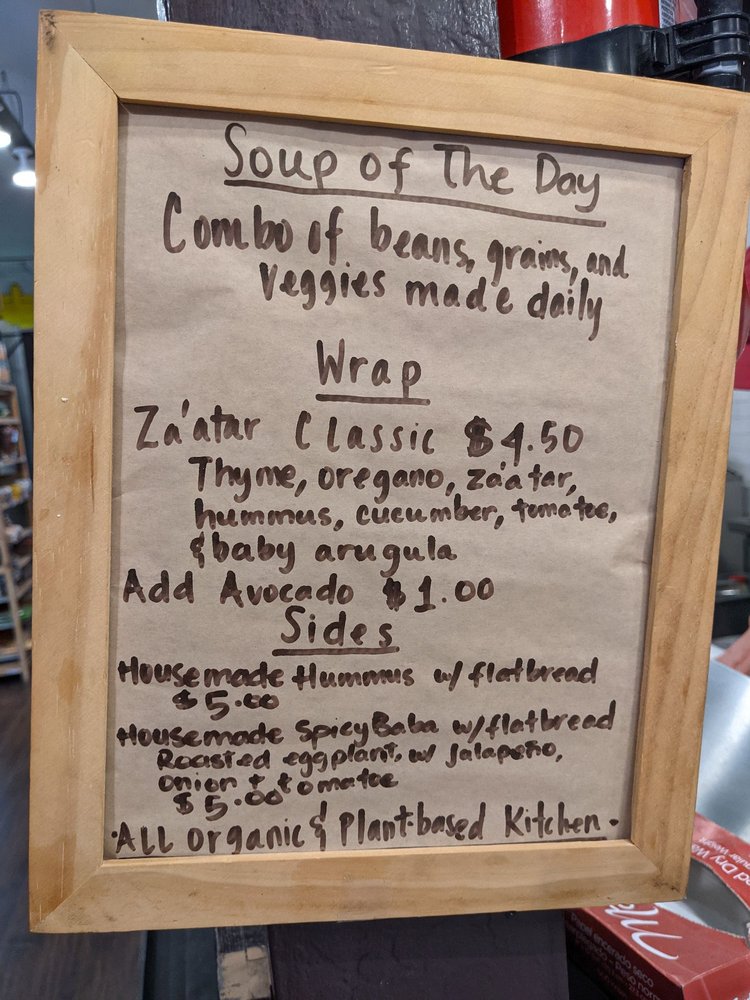 Soup of The Day
Combo of beans, grains, and
veggies made daily
Wrap
Za'atar Classic $4.50
Thyme, oregano, za'atar,
hummus, cucumber, tomatoe,
& baby arugula
Add Avocado $1.00
Sides
Housemade Hummus w/ flatbread
$5.00
Housemade Spicy Baba w/flatbread
Roasted eggplant, w/ Jalapeño,
onion + tomatoe
$5.00
•ALL organic & Plant-based Kitchen•
Dry Wa
ular Weight
Papel encerado seco
Peso nor